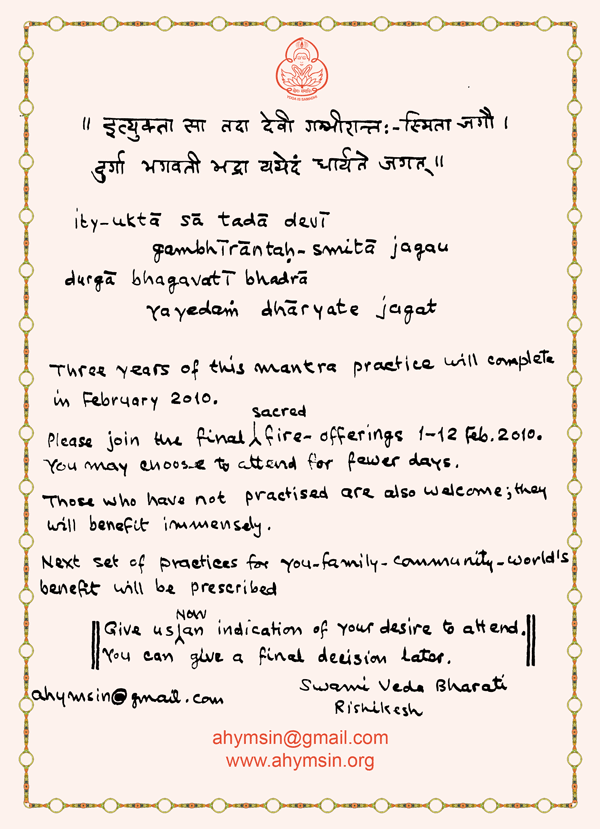 ॥ इत्युक्ता सा तदा देवी गम्भीरान्तः-स्मिता जगौ ।
दुर्गा भगवती भद्रा ययेदं धार्यते जगत् ॥
ity-uktā sā tadā devī
gambhīrāntaḥ-smitā jagau
durgā bhagavatī bhadrā
yayedaṁ dhāryate jagat
Three years of this mantra practice will complete
in February 2010.
sacred
Please join the final fire-offerings 1-12 Feb. 2010.
You may choose to attend for fewer days.
Those who have not practised are also welcome; they
will benefit immensely.
Next set of practices for you-family-community-world's
benefit will be prescribed
NOW
Give us an indication of your desire to attend.
You can give a final decision later.
Swami Veda Bharati
ahymsin@gmail.com
Rishikesh
ahymsin@gmail.com
www.ahymsin.org